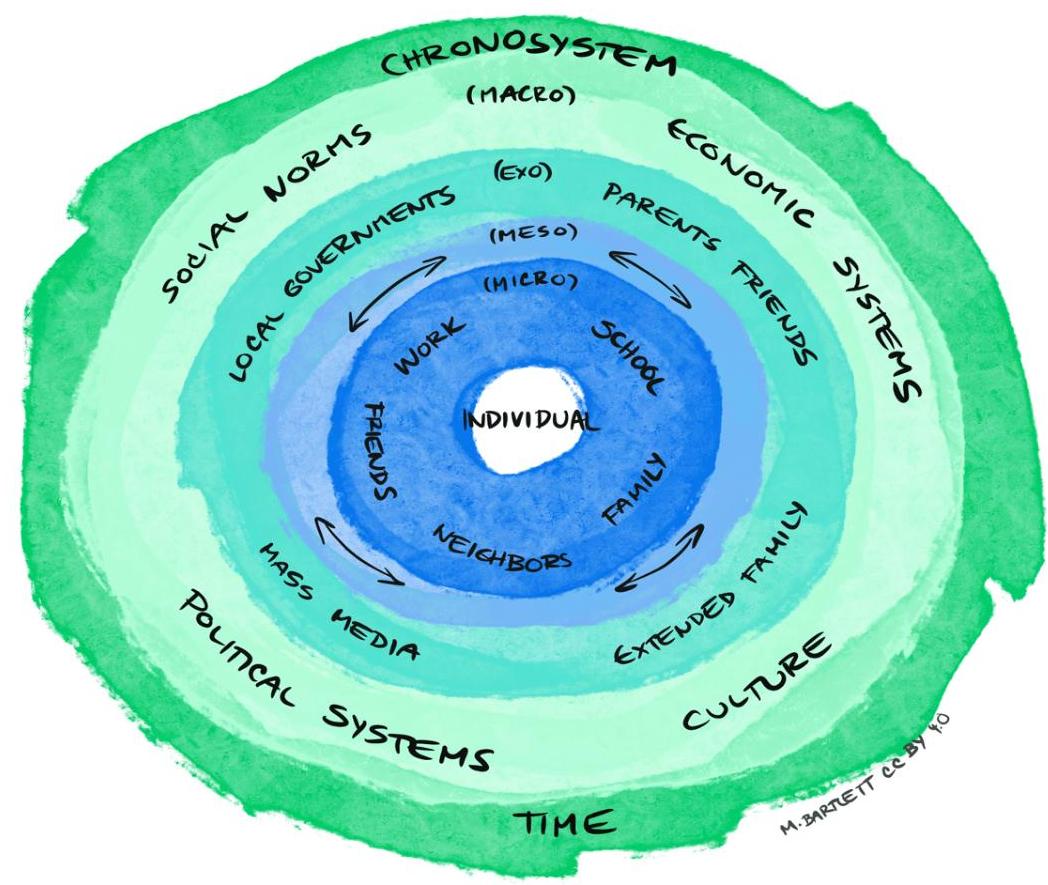 CHRONOSYSTEM
(MACRO)
SOCIAL NORMS
ECONOMIC SYSTEMS
(EXO)
LOCAL GOVERNMENTS
PARENTS FRIENDS
(MESO)
(MICRO)
WORK
SCHOOL
INDIVIDUAL
FRIENDS
FAMILY
NEIGHBORS
MASS MEDIA
EXTENDED FAMILY
POLITICAL SYSTEMS
CULTURE
TIME
M. BARTLETT CC BY 4.0